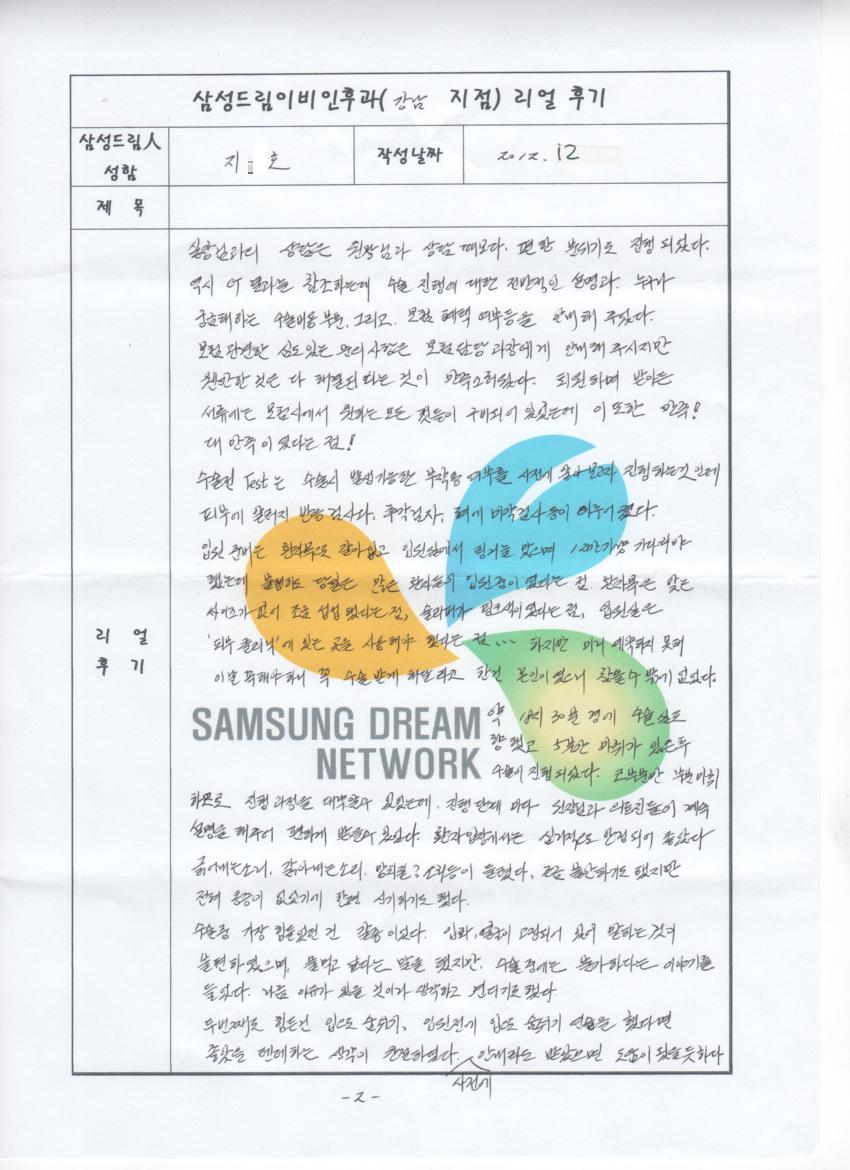 삼성드림이비인후과( 강남 지점) 리얼 후기
삼성드림人 성함
지 호
작성날짜
2012. 12
제 목
리 얼 후 기
실장님과의 상담은 원장님과 상담 때보다. 편한 분위기로 진행 되었다.
역시 CT 결과를 참조하는데 수술 진행에 대한 전반적인 설명과. 누구나
궁금해하는 수술비용 부분, 그리고, 보험 혜택 여부등을 안내해 주셨다.
보험 관련한 심도있는 문의 사항은 보험 담당 과장에게 안내해 주시지만
웬만한 것은 다 해결된다는 것이 만족스러웠다. 퇴원하며 받아든
서류에는 보험사에서 원하는 모든 것들이 구비되어 있었는데 이 또한 만족!
대 만족이었다는 점!
수술전 Test는 수술시 발생가능한 부작용 여부를 사전에 알아보고자 진행하는것 인데
피부에 알러지 반응검사다, 후각검사, 폐 검사등이 이루어 졌다.
입원 준비는 환자복으로 갈아입고 입원실에서 링거를 맞으며 1시간가량 기다려야
했는데 불행히도 당일은 많은 환자들이 입원중이었다는 점. 환자복은 맞는
사이즈가 없어. 조금 섭섭 했다는 점, 슬리퍼가 핑크색이었다는 점, 입원실은
'피부 클리닉'에 있는 곳을 사용해야 했다는 점... 하지만 미리 예약하지 못해
이날 꼭 수술 받게 해달라고 한건 본인이었으니 참을수 밖에 없었다.
SAMSUNG DREAM
NETWORK
약 18시 30분 경에 수술실로
향했고 5분간 마취가 있은후
수술이 진행 되었다. 코부분만 부분마취
하므로 진행 과정을 대략알수 있었는데. 진행 단계 마다 원장님과 의료진들이 계속
설명을 해주어 편하게 받을수 있었다. 환자입장에서는 심리적으로 안정되어 좋았다
긁어내는소리, 갉아내는소리. 망치질? 소리등이 들렸다, 조금 불안하기도 했지만
전혀 통증이 없었기에 한편 신기하기도 했다.
수술중 가장 힘들었던 건 갈증이었다. 입과, 얼굴이 고정되어 있어 말하는 것이
불편하였으며, 물먹고 싶다는 말을 했지만, 수술 중에는 불가하다는 이야기를
들었다. 나름 이유가 있을 것이라 생각하고 견디기로 했다.
두번째로 힘든건 입으로 숨쉬기, 입원전에 입으로 숨쉬기 연습을 했다면
좋았을 텐데하는 생각이 간절하였다. 사전에 안내라도 받았으면 도움이 됐을듯하다
- 2 -